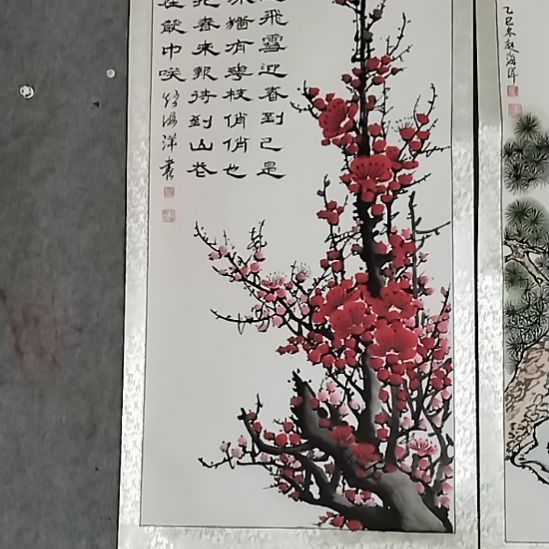 飛雪迎春到已是
猶有花枝俏俏也
把春来報待到山花
在叢中咲 海洋書
乙巳冬 海洋